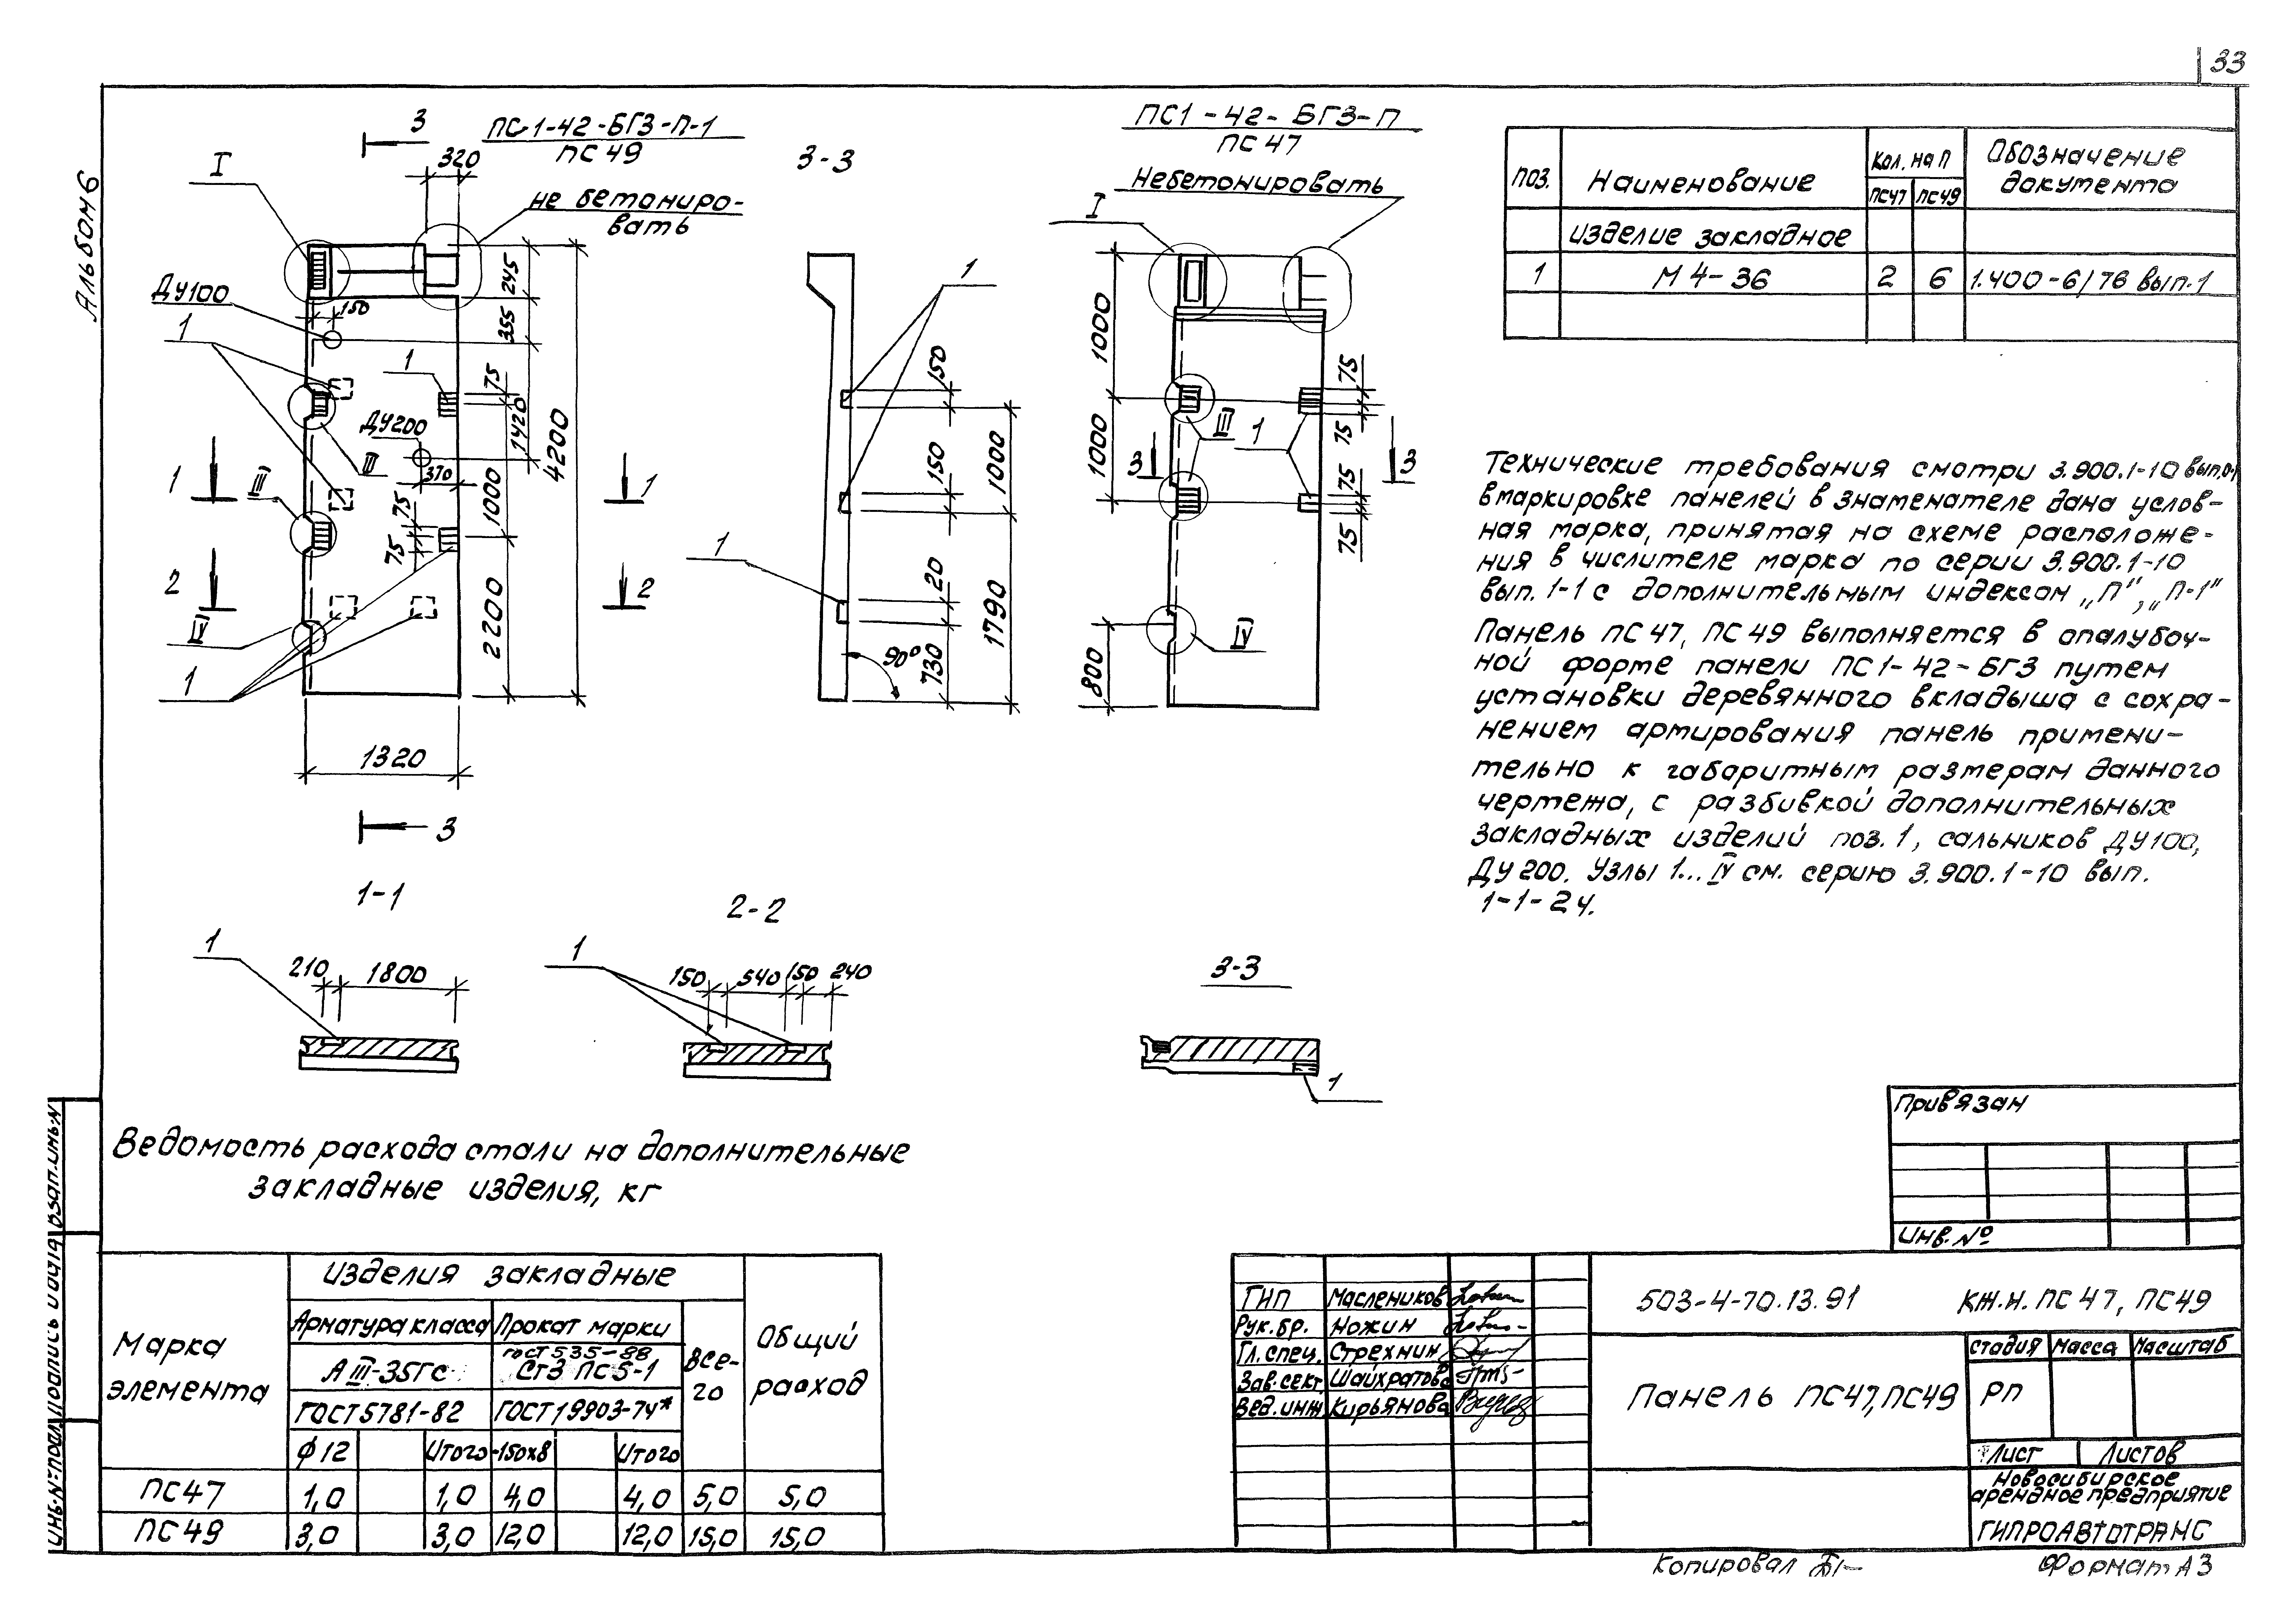 33
Альбом 6
ПС-1-42-БГЗ-П-1
ПС 49
3
320
I
не бетониро-
вать
ДУ100
150
1
1
ДУ200
370
245
355
75
1420
4200
1000
75
75
2200
II
III
IV
1
1
1
2
2
1320
3
3-3
1
150
150
1000
1
20
1790
90°
730
ПС1-42-БГЗ-П
ПС 47
Небетонировать
I
1000
1000
75
75
75
75
III
1
3
3
IV
800
Поз.
Наименование
Кол. на П
ПС47
ПС49
Обозначение
документа
изделие закладное
1
М 4-36
2
6
1.400-6/76 вып.1
Технические требования смотри 3.900.1-10 вып.0-1
в маркировке панелей в знаменателе дана услов-
ная марка, принятая на схеме расположе-
ния в числителе марка по серии 3.900.1-10
вып. 1-1 с дополнительным индексом „П", „П-1"
Панель ПС 47, ПС 49 выполняется в опалубоч-
ной форме панели ПС 1-42-БГЗ путем
установки деревянного вкладыша с сохра-
нением армирования панель примени-
тельно к габаритным размерам данного
чертежа, с разбивкой дополнительных
закладных изделий поз. 1, сальников ДУ100,
ДУ 200. Узлы 1...IV см. серию 3.900.1-10 вып.
1-1-24.
1-1
1
210
1800
2-2
1
150
540
150
240
3-3
1
Ведомость расхода стали на дополнительные
закладные изделия, кг
Марка
элемента
Изделия закладные
Арматура класса
А III-35ГС
ГОСТ 5781-82
Прокат марки
ГОСТ 535-88
Ст3 ПС 5-1
ГОСТ 19903-74*
Все-
го
Общий
расход
ф 12
Итого
-150х8
Итого
ПС47
1,0
1,0
4,0
4,0
5,0
5,0
ПС 49
3,0
3,0
12,0
12,0
15,0
15,0
Привязан
Инв. №
ГИП
Маслеников
Рук. бр.
Ножин
Гл. спец.
Стрехнин
Зав. сект
Шайхратова
Вед. инж
Кирьянова
503-4-70.13.91
КЖ.И. ПС 47, ПС49
Панель ПС47, ПС49
стадия
Масса
Масштаб
РП
Лист
Листов
Новосибирское
арендное предприятие
ГИПРОАВТОТРАНС
Копировал
Формат А3
Инв. № подл.
Подпись и дата
Взап. инв. №